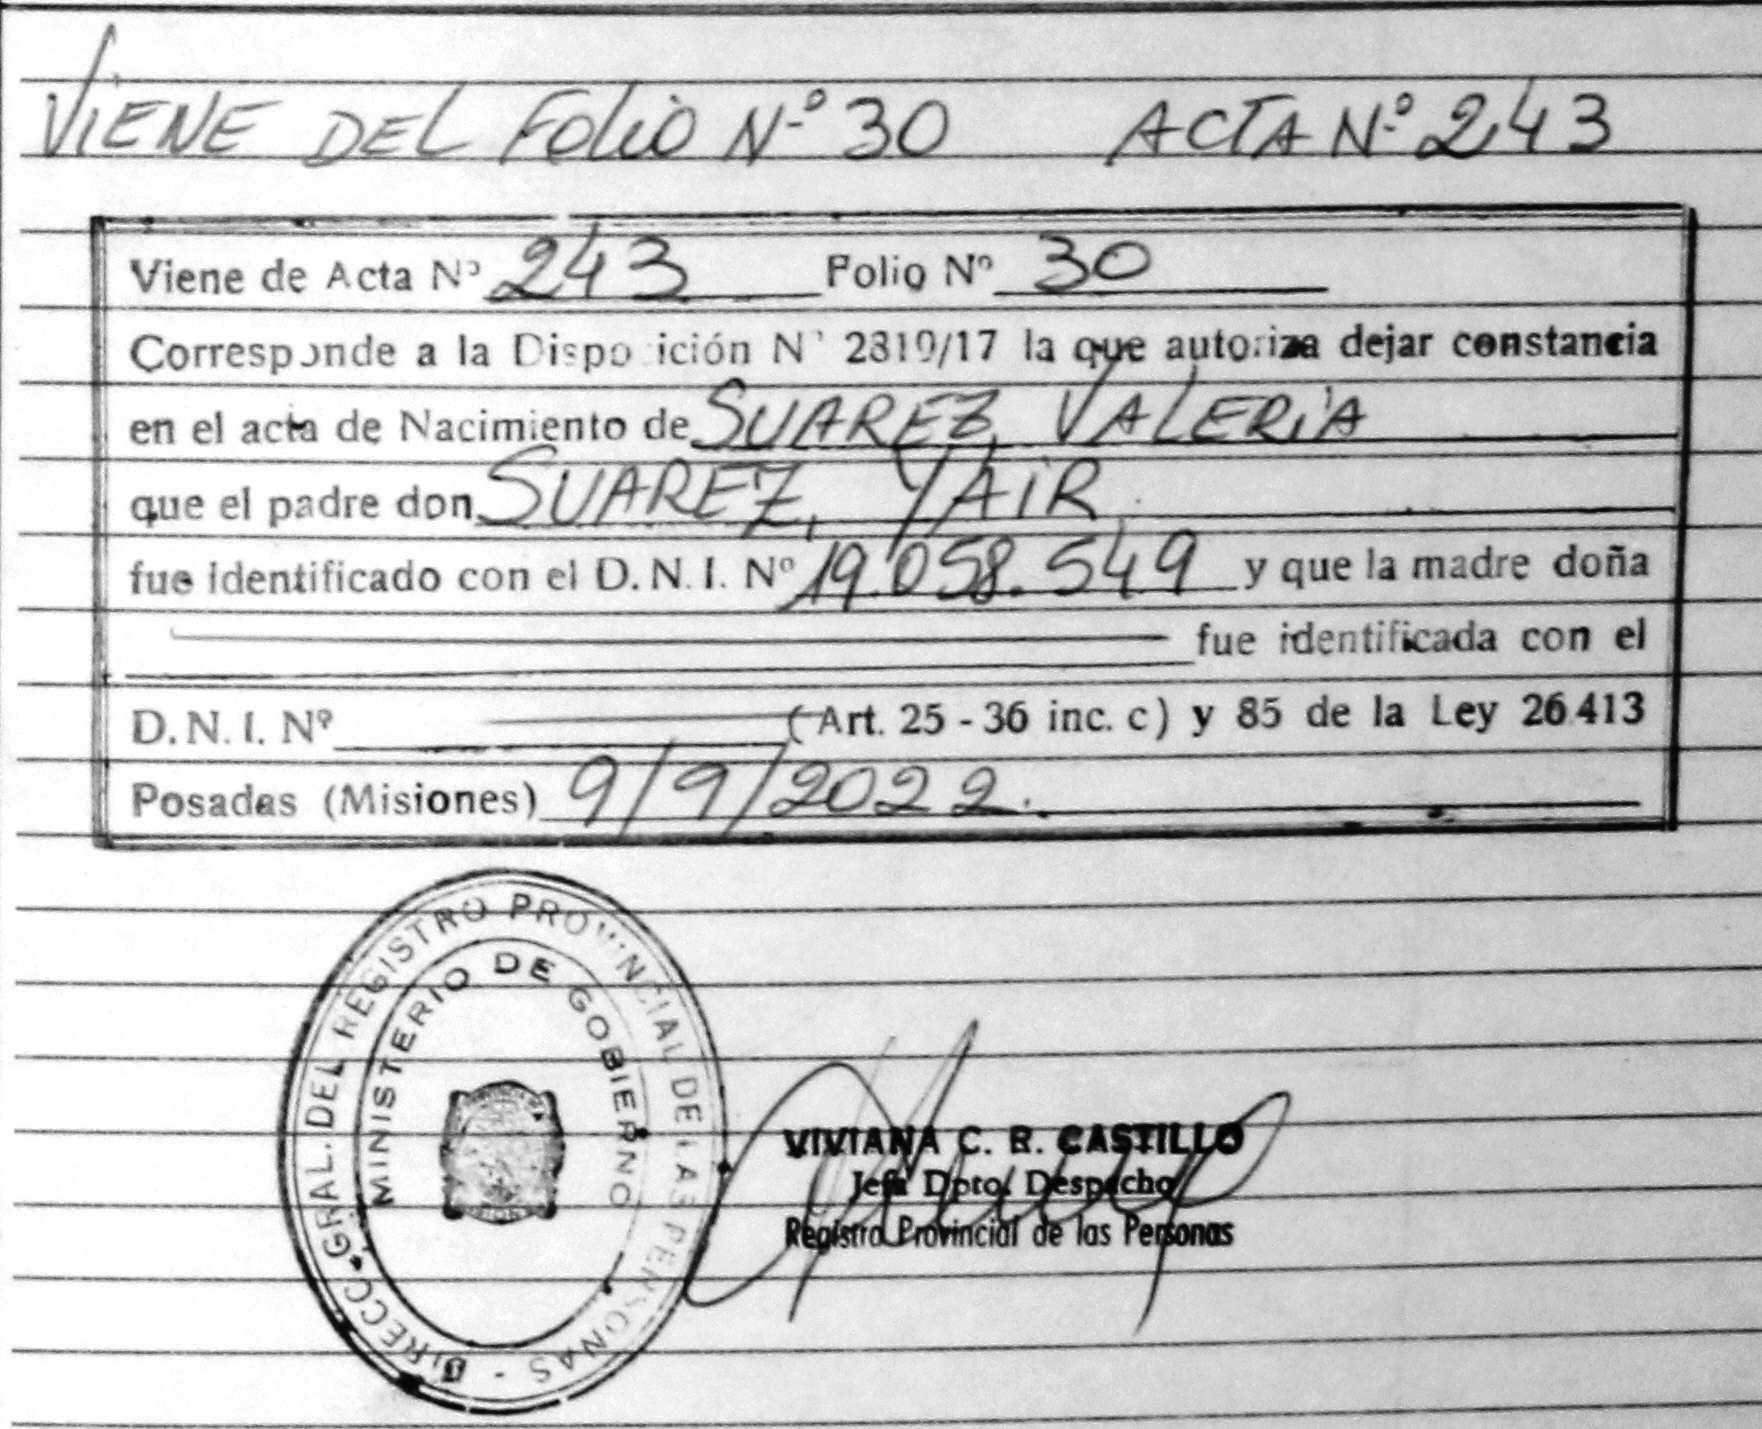 VIENE DEL FOLIO Nº 30 ACTA Nº 243
Viene de Acta Nº 243 Folio Nº 30
Corresponde a la Disposición Nº 2819/17 la que autoriza dejar constancia
en el acta de Nacimiento de SUAREZ, VALERIA
que el padre don SUAREZ, YAIR
fue identificado con el D.N.I. Nº 19.058.549 y que la madre doña
fue identificada con el
D.N.I. Nº (Art. 25 - 36 inc. c) y 85 de la Ley 26413
Posadas (Misiones) 9/9/2022.
DIRECC. GRAL. DEL REGISTRO PROVINCIAL DE LAS PERSONAS -
MINISTERIO DE GOBIERNO
VIVIANA C. R. CASTILLO
Jefa Dpto. Despacho
Registro Provincial de las Personas